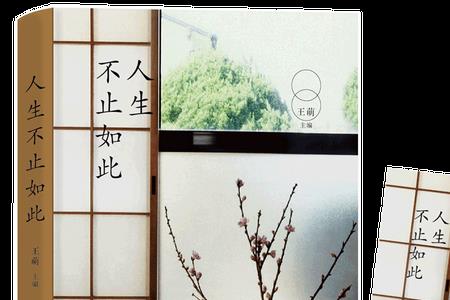 人生不止如此
王萌
主编
人生
不止如此
王萌
主编
人生
不止如此